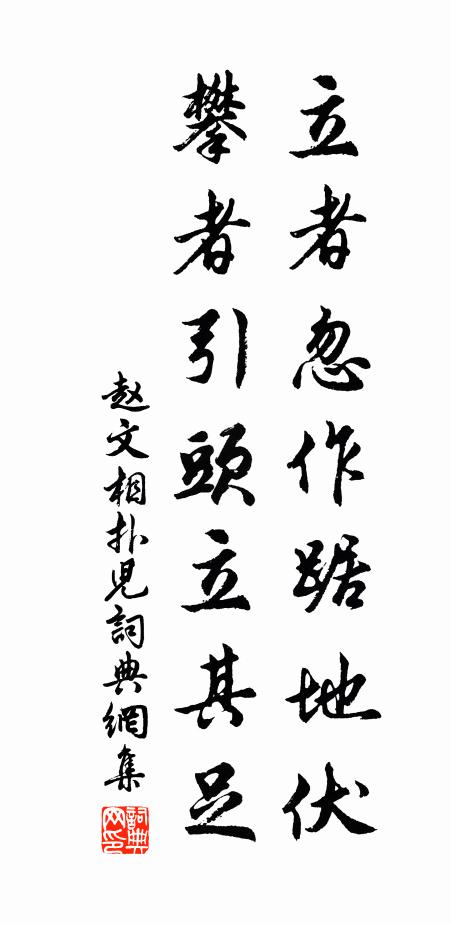 立者忽作踞地伏
攀者引頭立其足
赵文相扑児詞典網集
詞典
网印